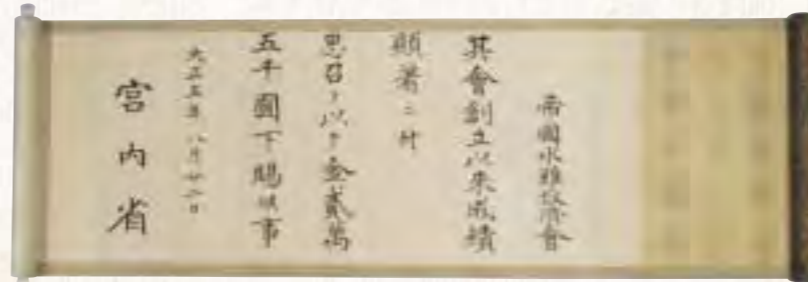 帝國水難救濟會
其會創立以來成績
顯著ニ付
思召ヲ以テ金貳萬
五千圓下賜候事
大正五年 八月廿二日
宮内省